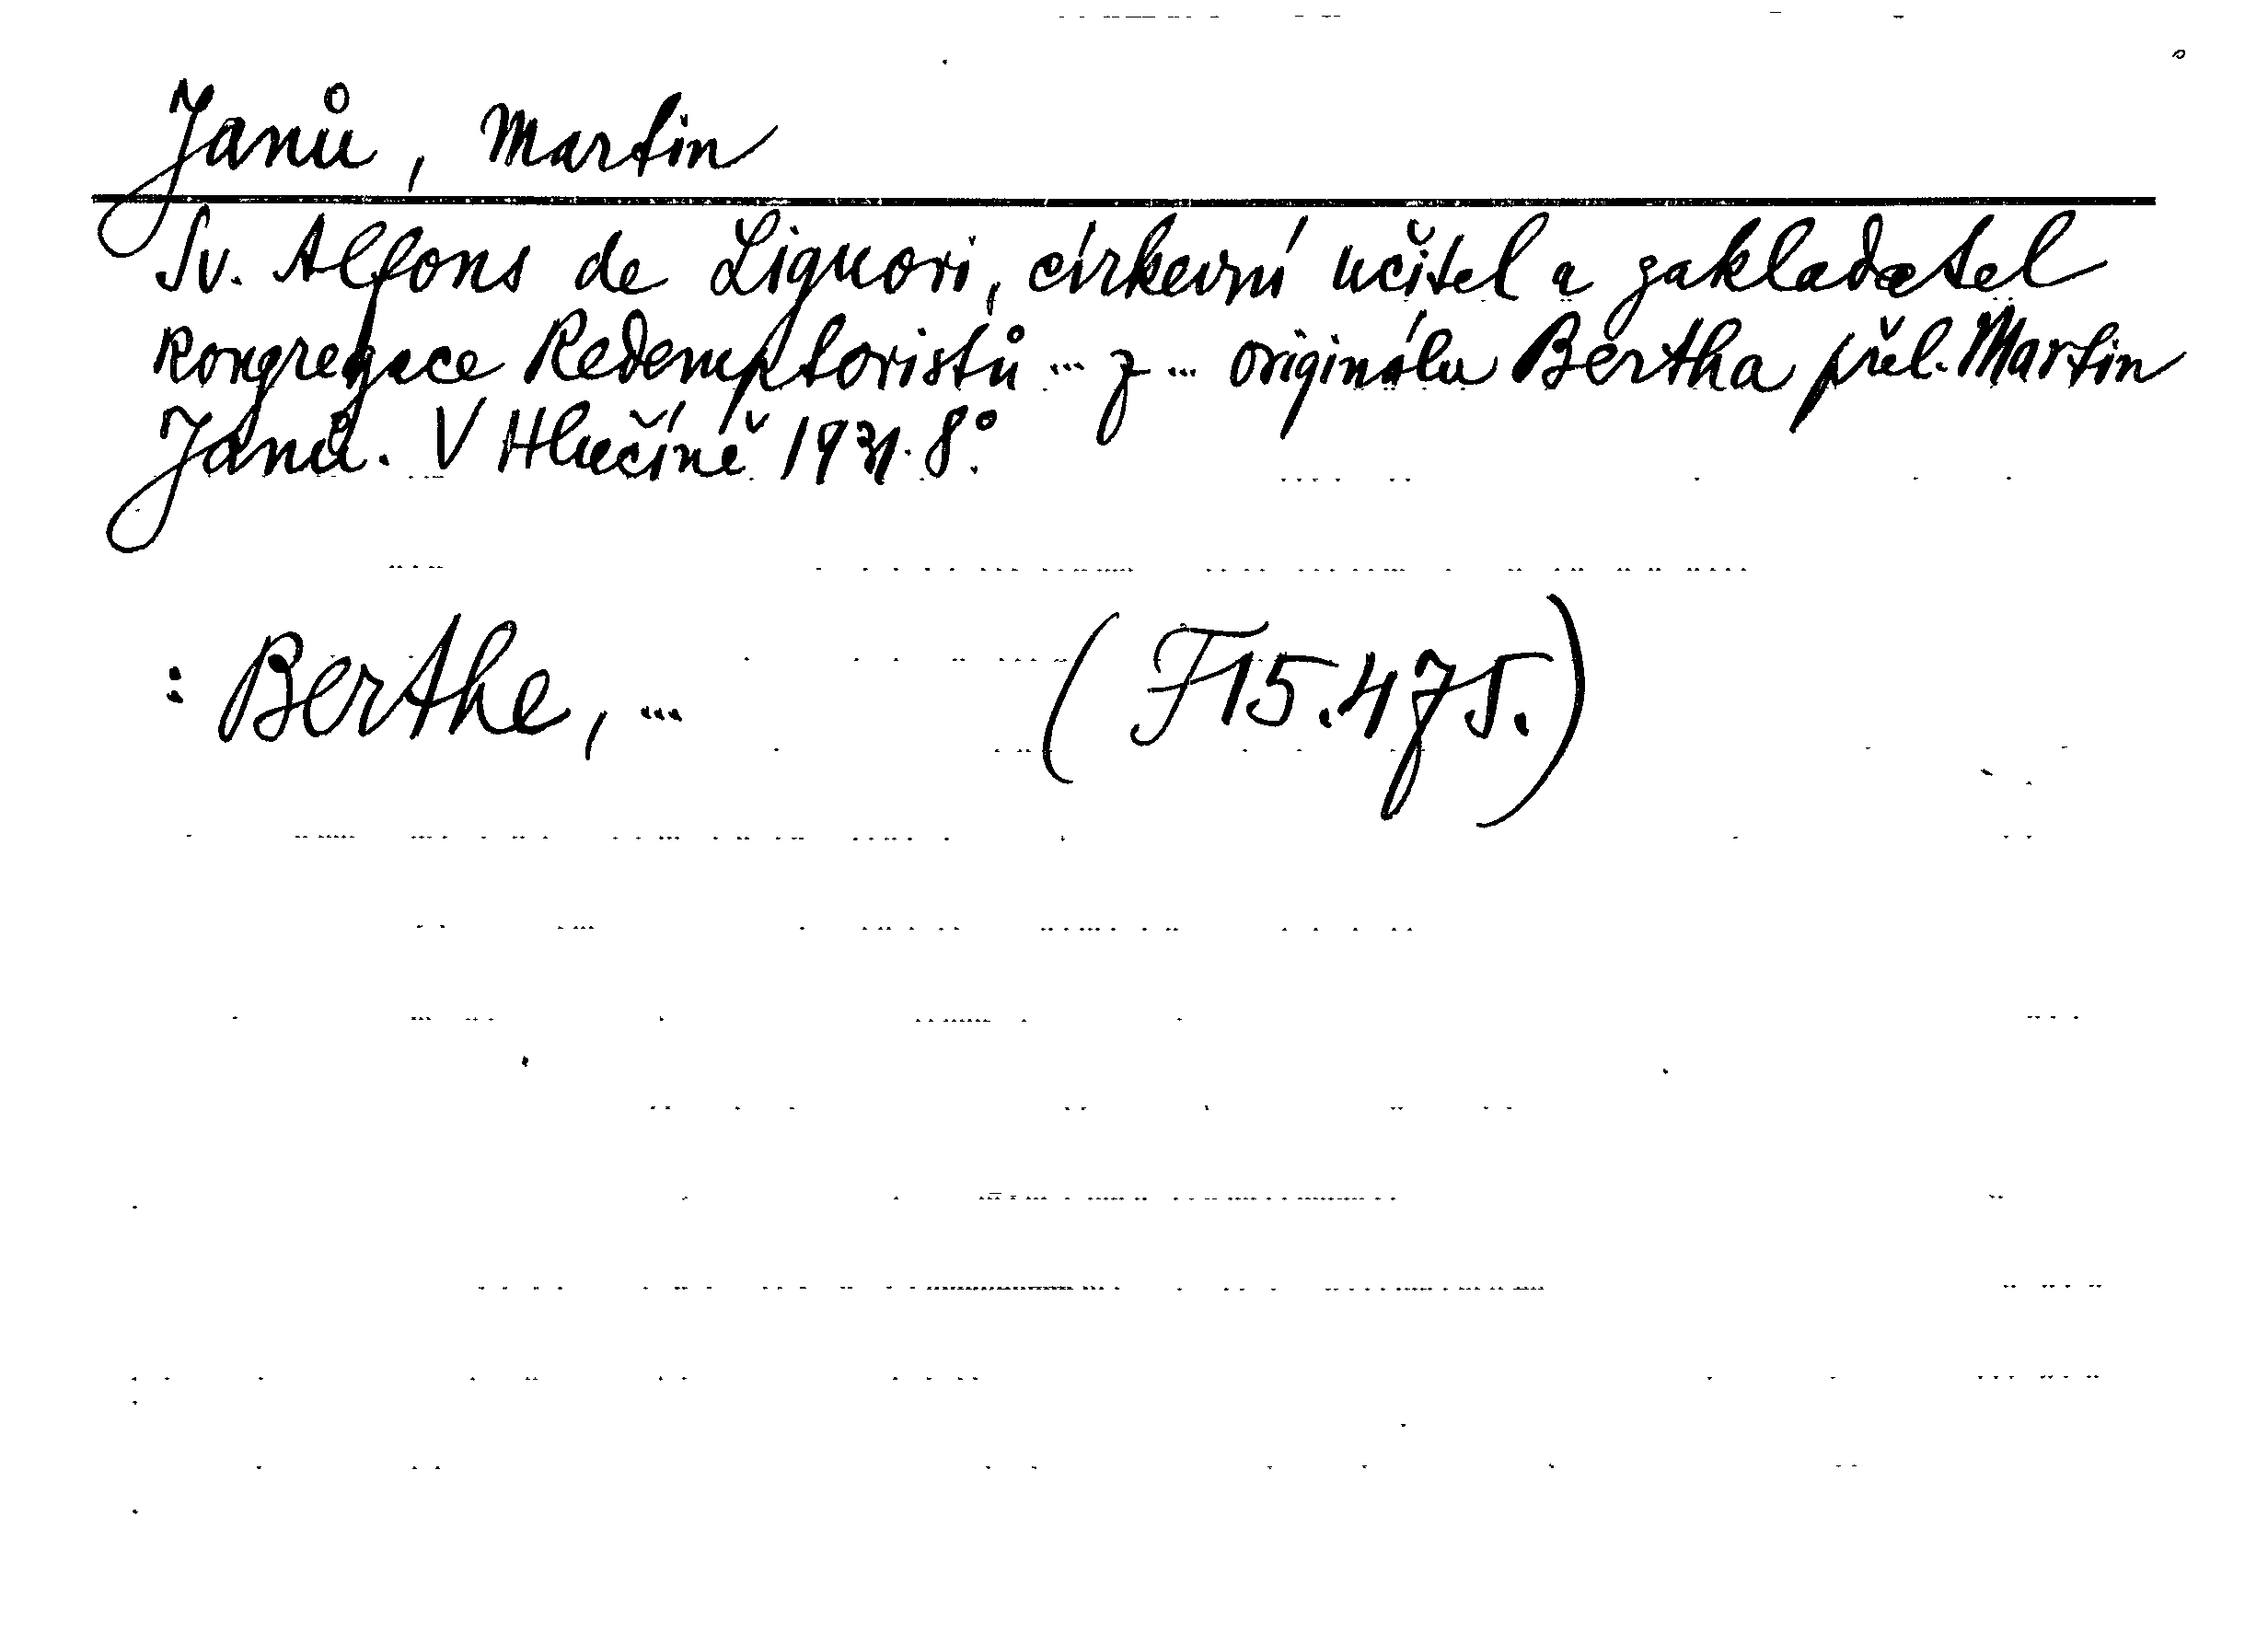 Janů, Martin
Sv. Alfons de Liguori, církevní učitel a zakladatel
kongregace Redemptoristů ... z ... originálu Bertha přel. Martin
Janů. V Hlučíně 1931. 8°.
: Berthe, ... (F15.475.)